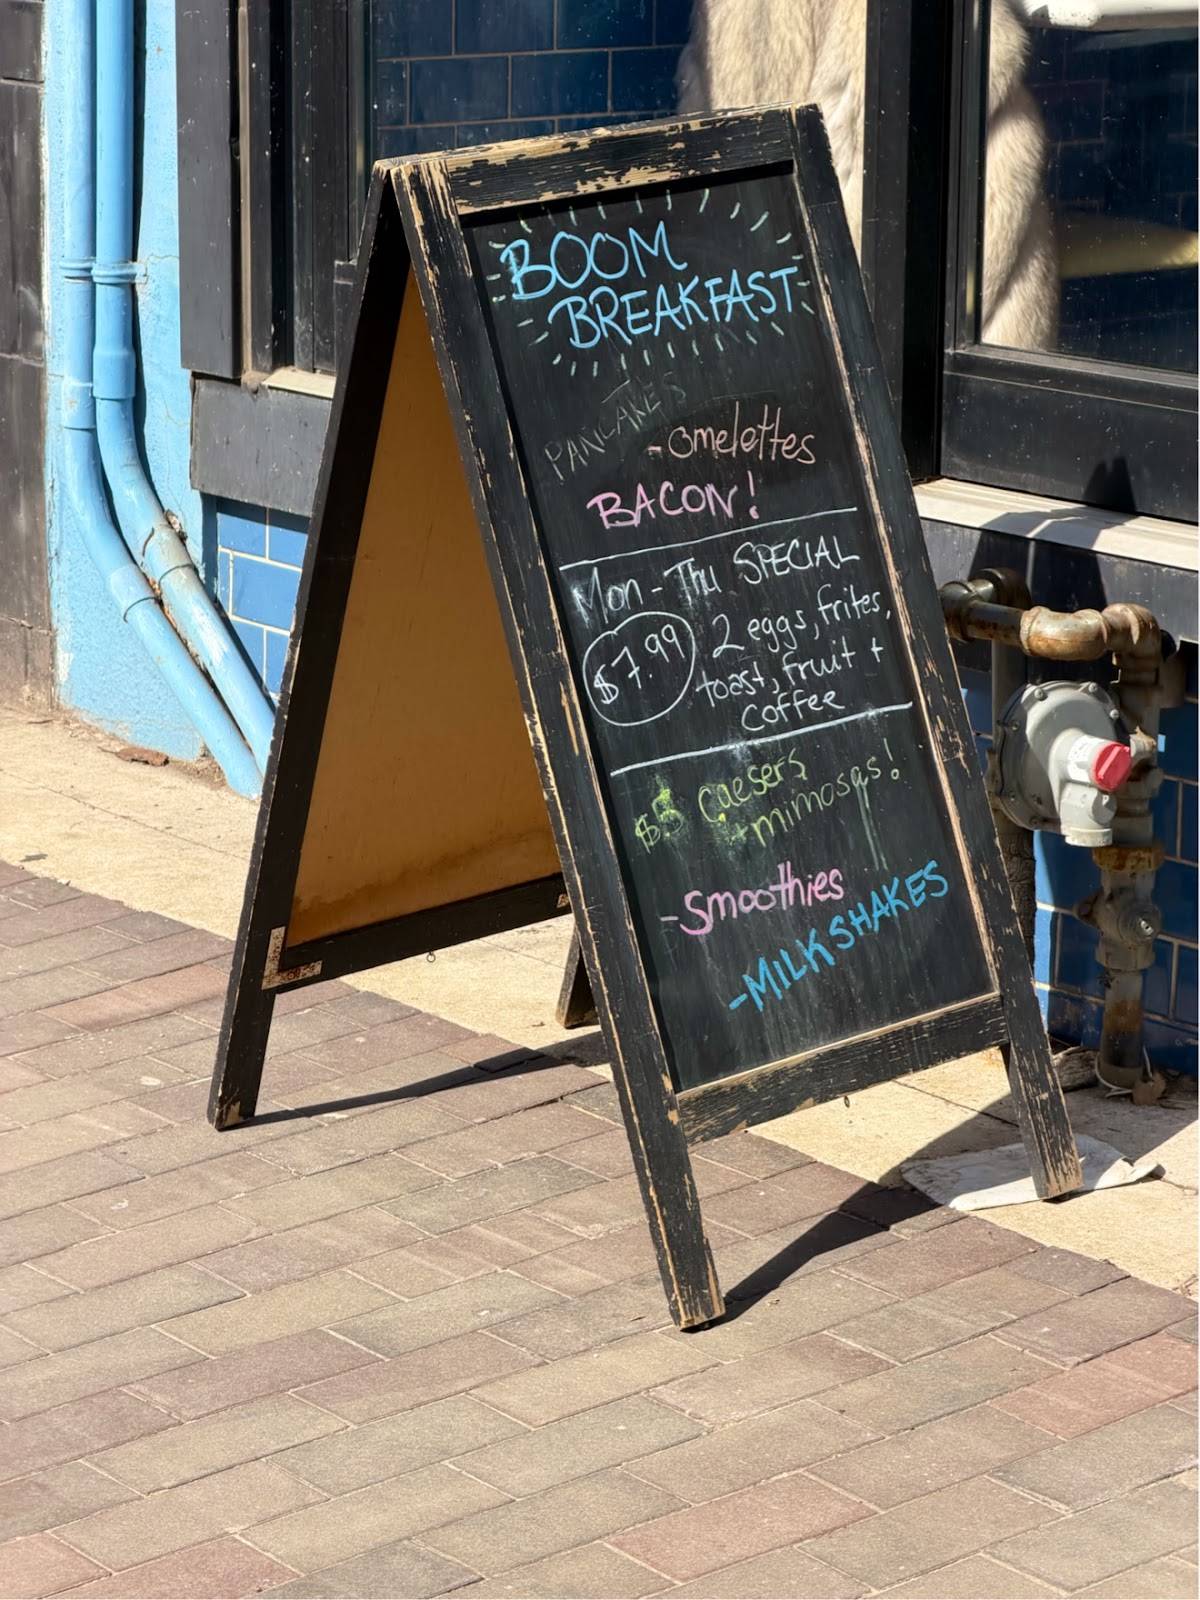 BOOM
BREAKFAST
PANCAKES
-omelettes
BACON!
Mon-Thu SPECIAL
$7.99
2 eggs, frites,
toast, fruit +
coffee
$5 Caesers
+mimosas!
-Smoothies
-MILKSHAKES